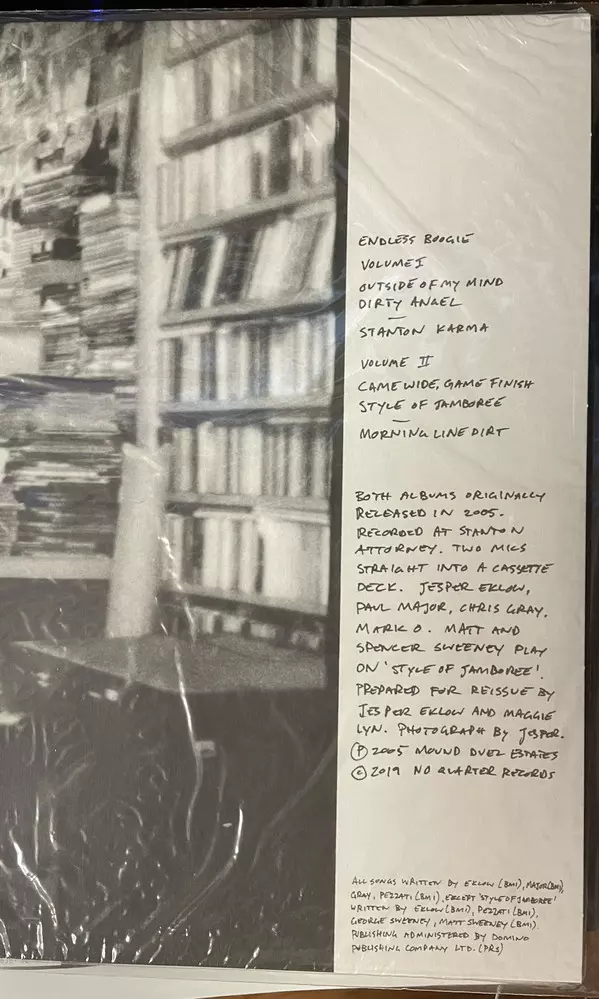 ENDLESS BOOGIE
VOLUME I
OUTSIDE OF MY MIND
DIRTY ANGEL
—
STANTON KARMA
VOLUME II
CAME WIDE, GAME FINISH
STYLE OF JAMBOREE
—
MORNING LINE DIRT
BOTH ALBUMS ORIGINALLY
RELEASED IN 2005.
RECORDED AT STANTON
ATTORNEY. TWO MICS
STRAIGHT INTO A CASSETTE
DECK. JESPER EKLOW,
PAUL MAJOR, CHRIS GRAY,
MARK O. MATT AND
SPENCER SWEENEY PLAY
ON 'STYLE OF JAMBOREE'.
PREPARED FOR REISSUE BY
JESPER EKLOW AND MAGGIE
LYN. PHOTOGRAPH BY JESPER.
Ⓟ 2005 MOUND DUEL ESTATES
© 2019 NO QUARTER RECORDS
ALL SONGS WRITTEN BY EKLOW (BMI), MAJOR (BMI),
GRAY, PEZZATI (BMI), EXCEPT 'STYLE OF JAMBOREE'
WRITTEN BY EKLOW (BMI), PEZZATI (BMI),
GEORGE SWEENEY, MATT SWEENEY (BMI).
PUBLISHING ADMINISTERED BY DOMINO
PUBLISHING COMPANY LTD. (PRS)